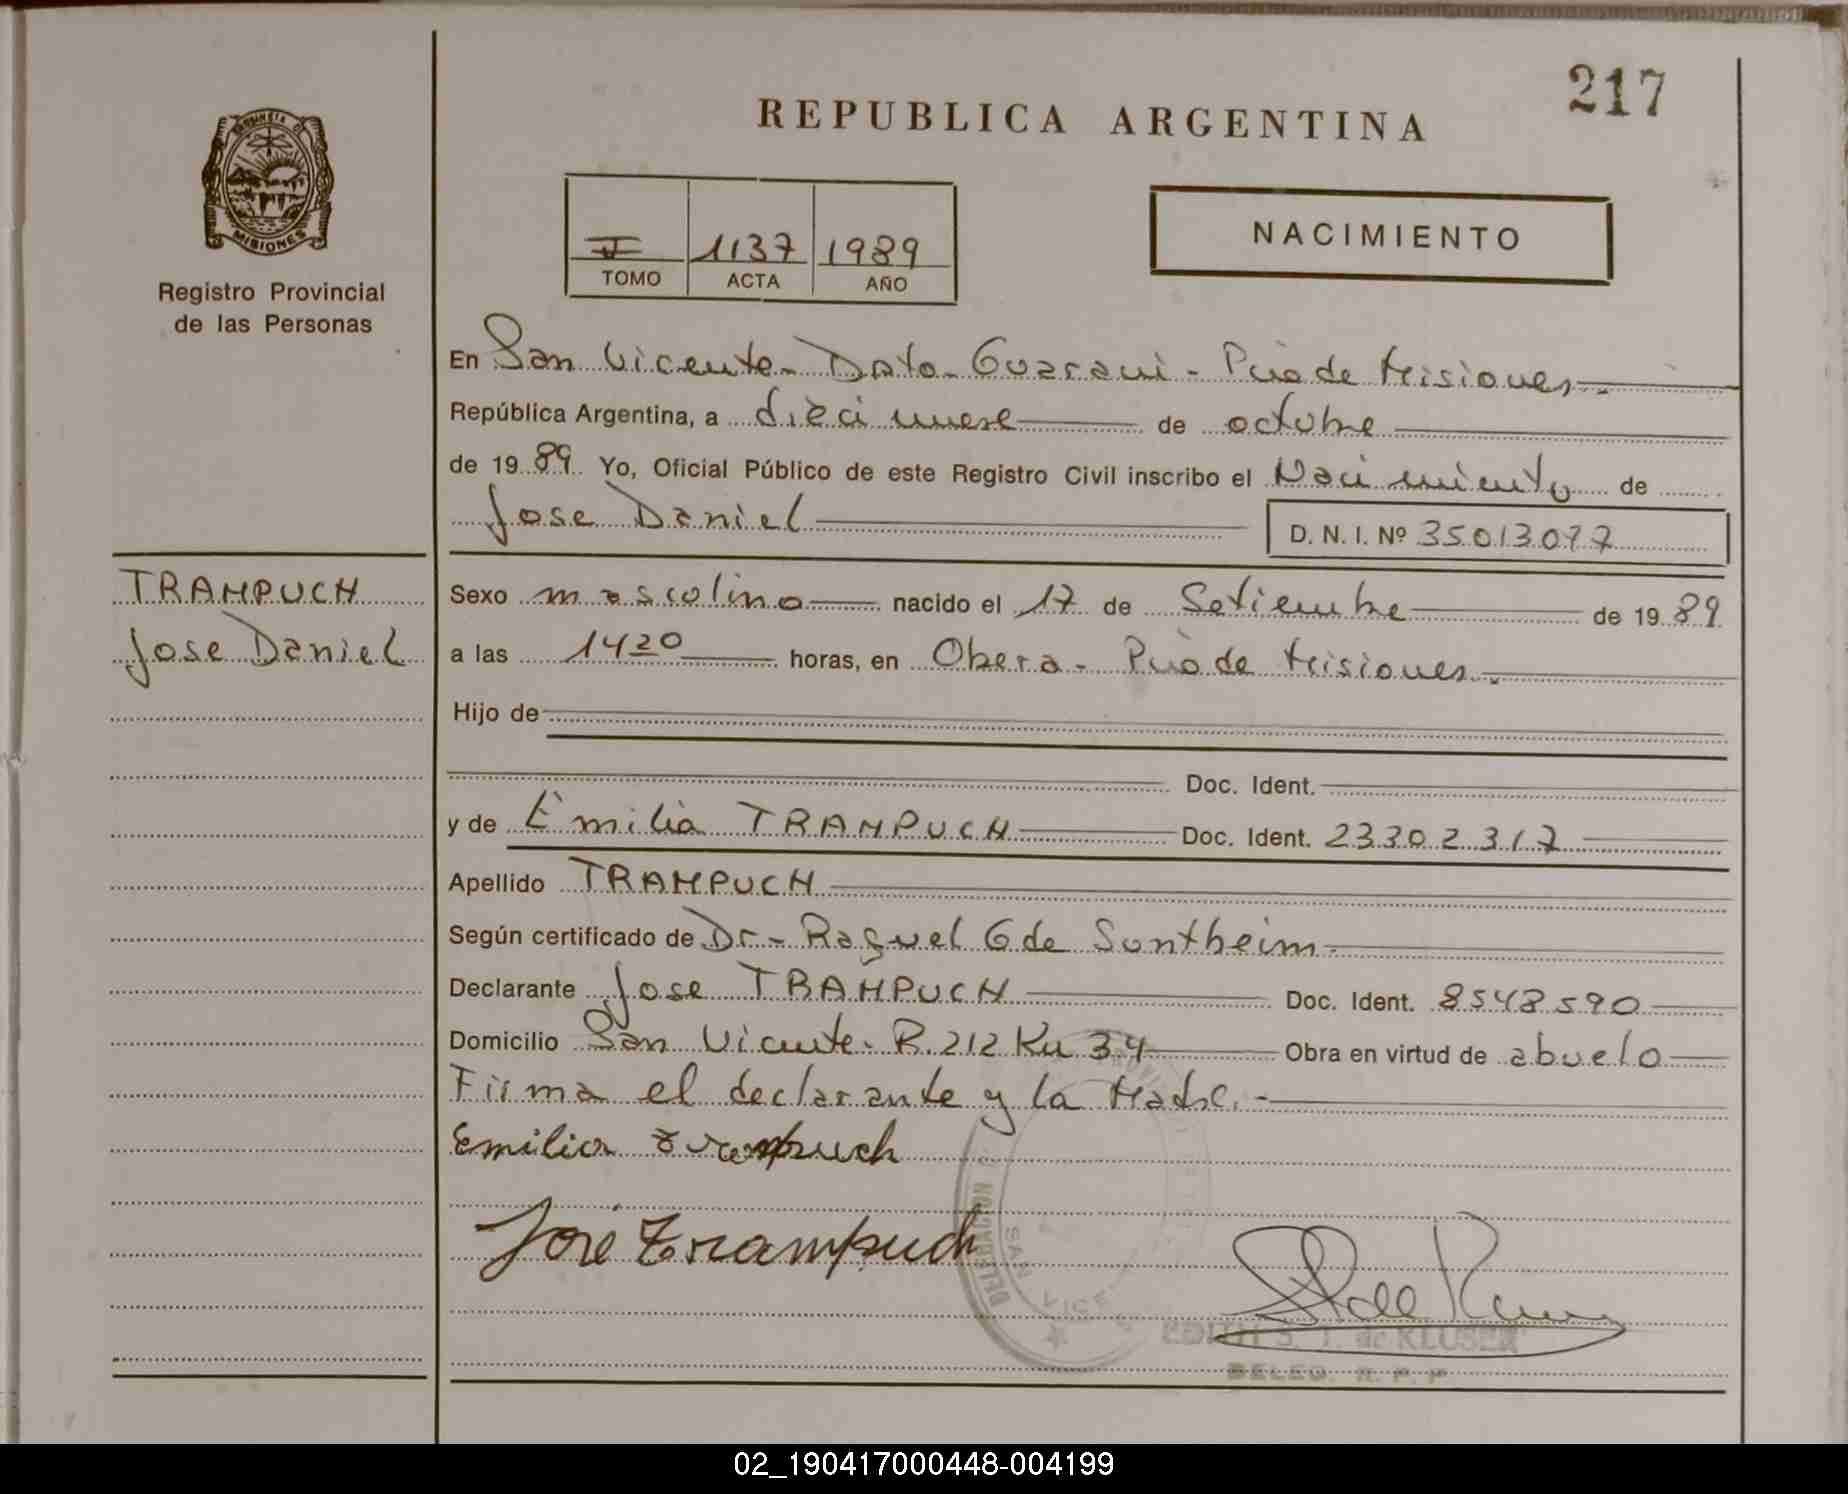 217
REPUBLICA ARGENTINA
PROVINCIA DE
MISIONES
Registro Provincial
de las Personas
TOMO
1137 ACTA
1989 AÑO
NACIMIENTO
En San Vicente - Dpto - Guarani - Pcia de Misiones
República Argentina, a dieci nueve de octubre
de 1989 Yo, Oficial Público de este Registro Civil inscribo el Naci miento de
Jose Daniel D. N. I. Nº 35013077
TRAMPUCH
Jose Daniel
Sexo mascolino nacido el 17 de Setiembre de 1989
a las 1420 horas, en Obera - Pcia de Misiones.
Hijo de
Doc. Ident.
y de Emilia TRAMPUCH Doc. Ident. 23302317
Apellido TRAMPUCH
Según certificado de Dr - Raquel G de Sontheim
Declarante Jose TRAMPUCH Doc. Ident. 8548590
Domicilio San Vicente - R. 212 Km 34 Obra en virtud de abuelo
Firma el declarante y la Madre. -
Emilia Trampuch
José Trampuch
DELEGACION
SAN VICENTE
EDITH S. T. de KLUSER
DELEG. R. P. P
02_190417000448-004199